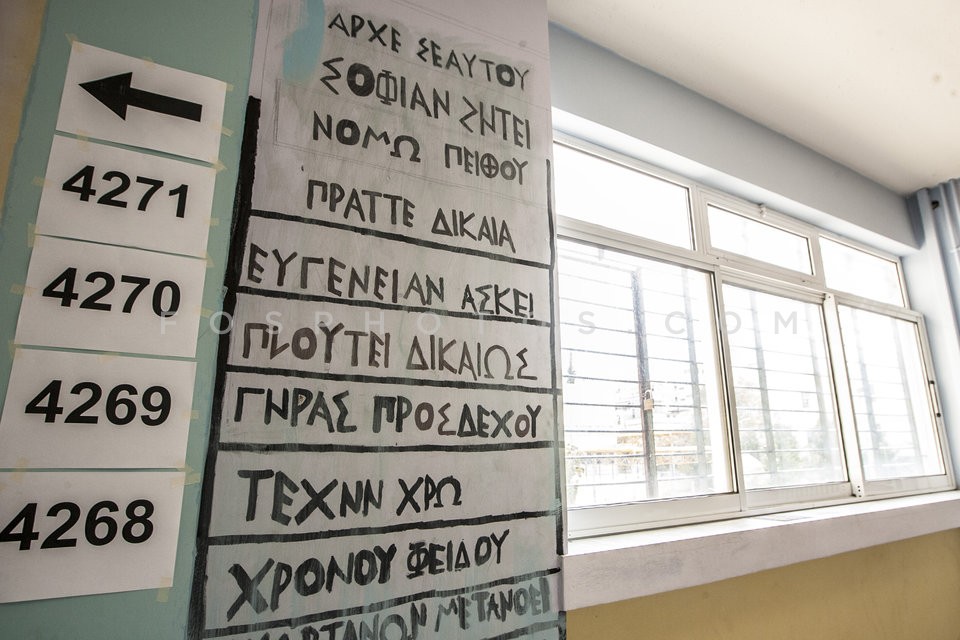 4271
4270
4269
4268
ΑΡΧΕ ΣΕΑΥΤΟΥ
ΣΟΦΙΑΝ ΖΗΤΕΙ
ΝΟΜΩ ΠΕΙΘΟΥ
ΠΡΑΤΤΕ ΔΙΚΑΙΑ
ΕΥΓΕΝΕΙΑΝ ΑΣΚΕΙ
ΠΛΟΥΤΕΙ ΔΙΚΑΙΩΣ
ΓΗΡΑΣ ΠΡΟΣΔΕΧΟΥ
ΤΕΧΝΝ ΧΡΩ
ΧΡΟΝΟΥ ΦΕΙΔΟΥ
ΜΕΤΑΝΟΕΙ
FOSPHOTOS.COM